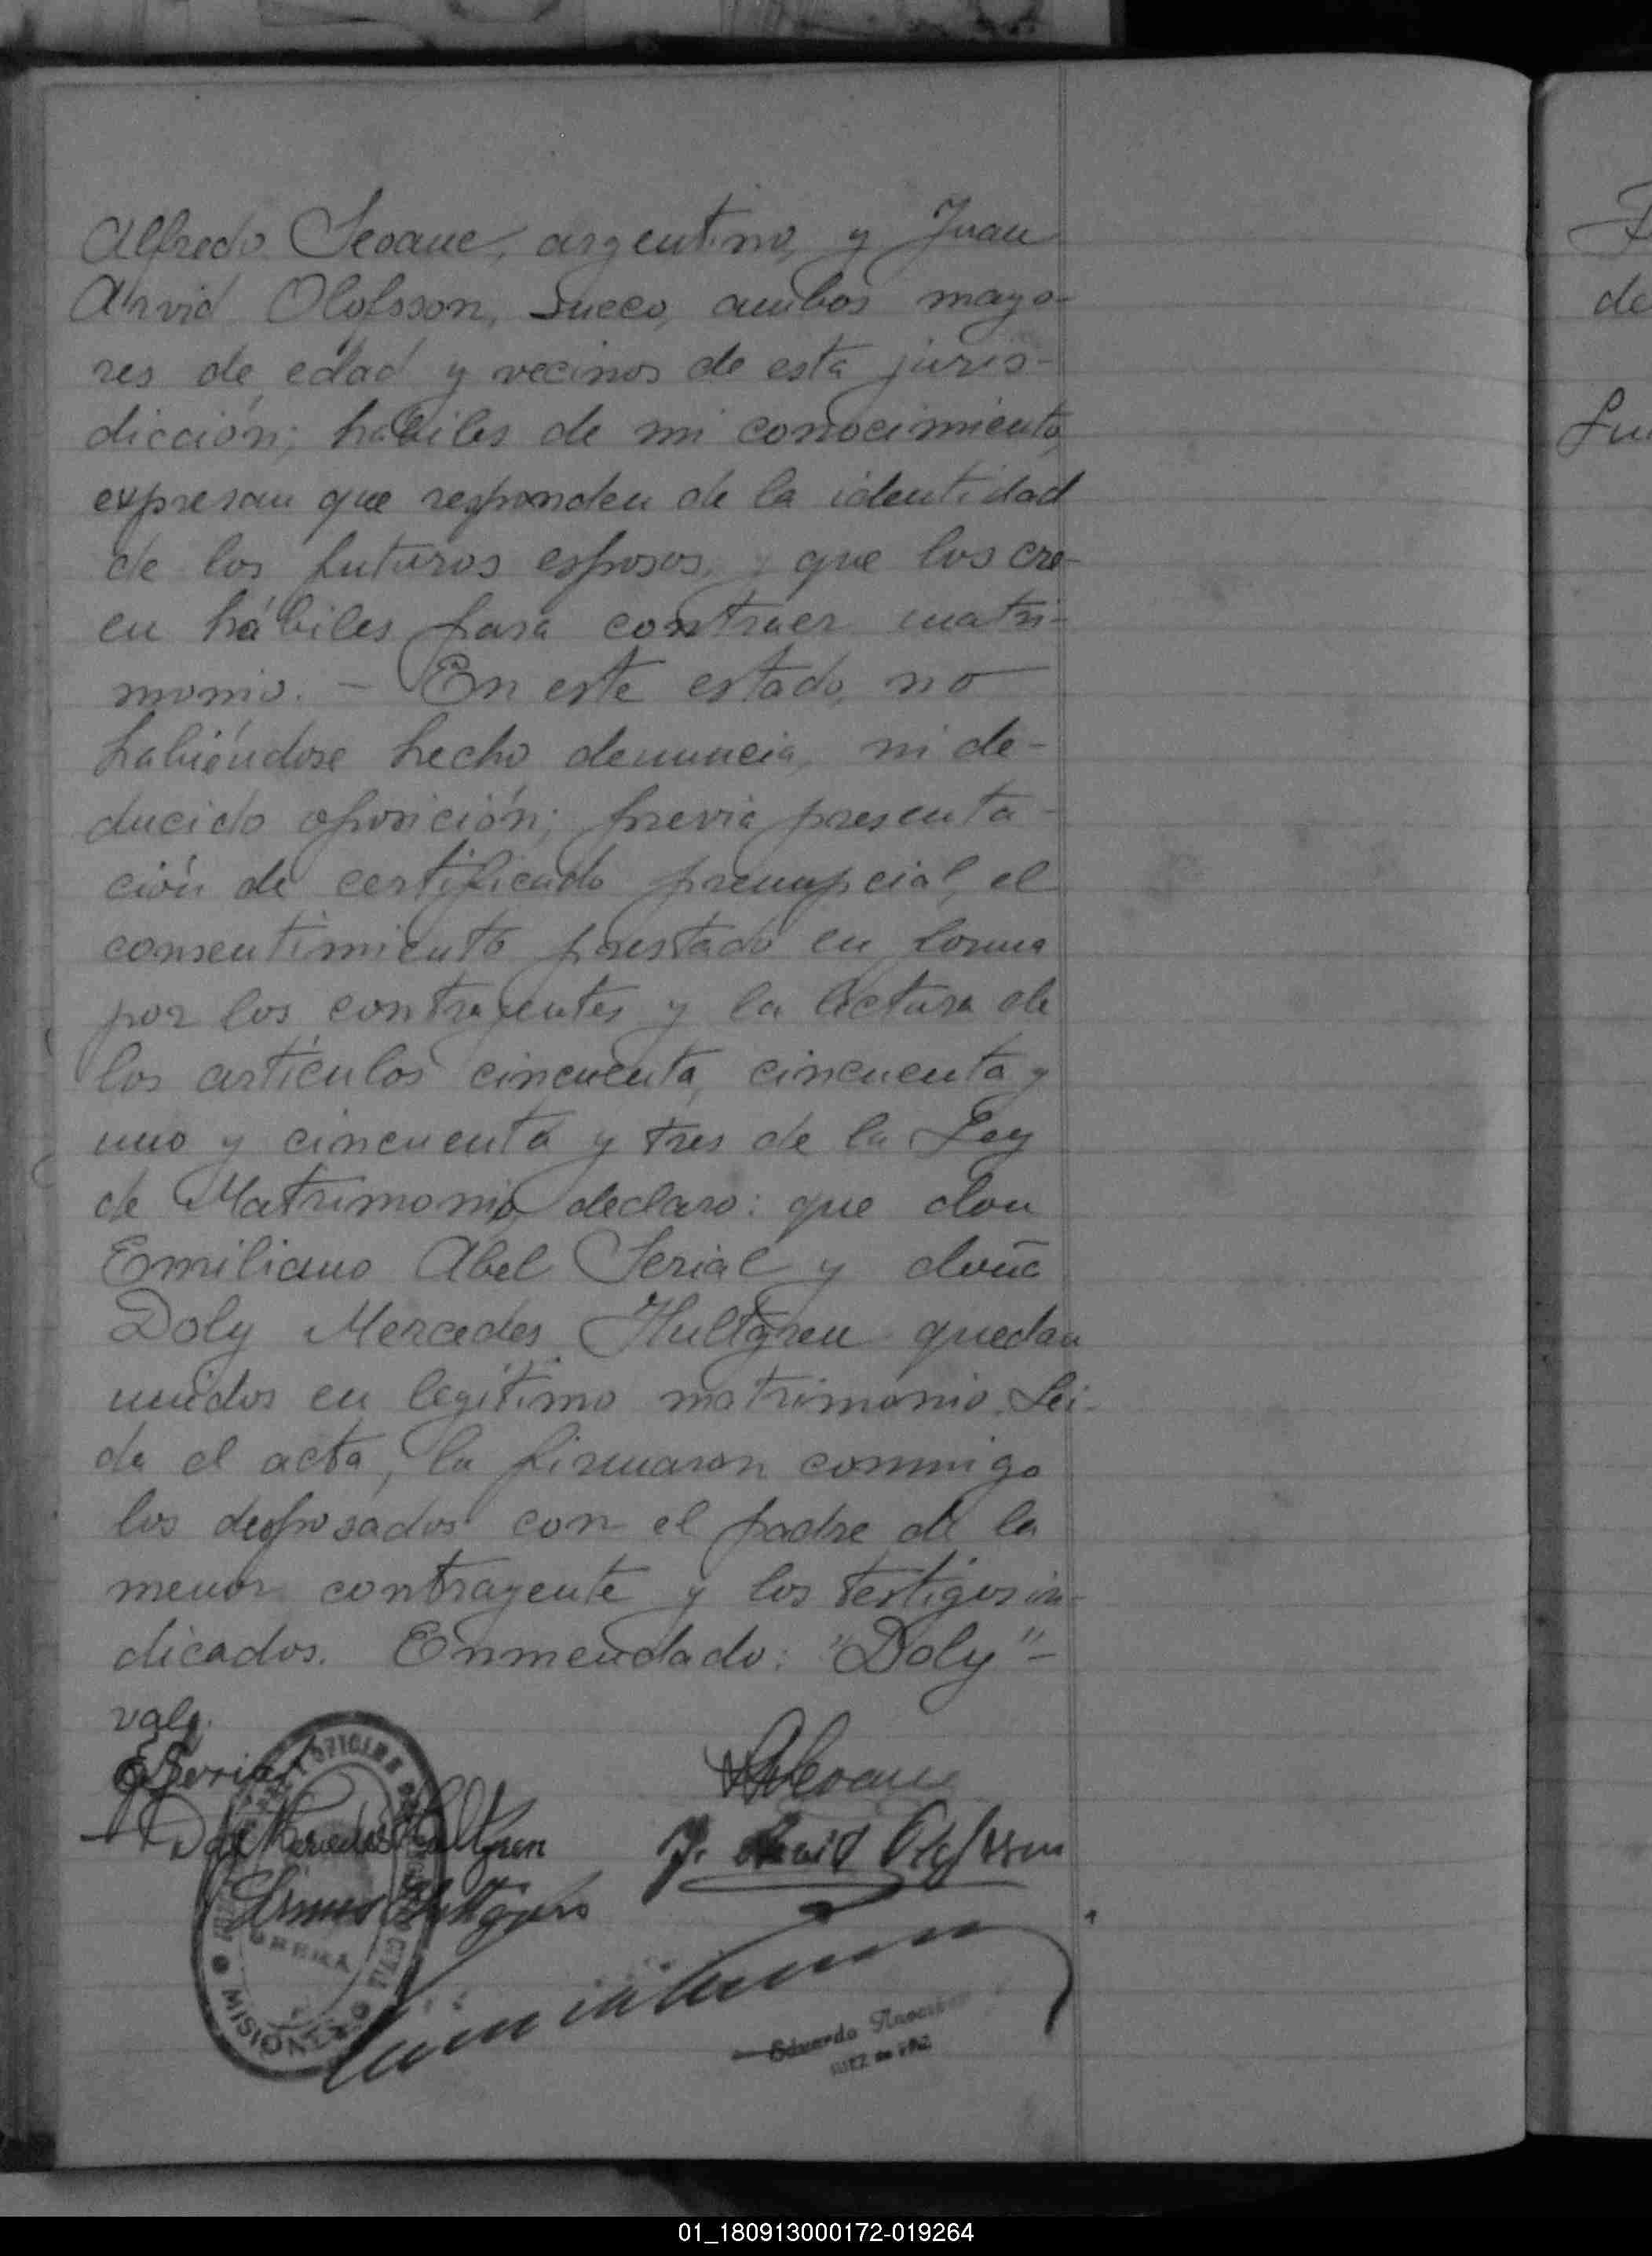 Alfredo Seoane, argentino, y Juan
Arvid Olofsson, sueco, ambos mayo-
res de edad y vecinos de esta juris-
dicción; hábiles de mi conocimiento,
expresan que responden de la identidad
de los futuros esposos, y que los cre-
en hábiles para contraer matri-
monio. – En este estado, no
habiéndose hecho denuncia, ni de-
ducido oposición; previa presenta-
ción de certificado prenupcial, el
consentimiento prestado en forma
por los contrayentes y la lectura de
los artículos cincuenta, cincuenta y
uno y cincuenta y tres de la Ley
de Matrimonio, declaro: que don
Emiliano Abel Serial y doña
Doly Mercedes Hultgren quedan
unidos en legítimo matrimonio. Lei-
da el acta, la firmaron conmigo
los desposados con el padre de la
menor contrayente y los testigos in-
dicados. Enmendado: "Doly" –
vale.
E Serial
Seoane
Doly Mercedes Hultgren
J. Arvid Olofsson
Hultgren
OBERÁ
MISIONES
Eduardo
JUEZ DE PAZ
F
de
Lu
01_180913000172-019264